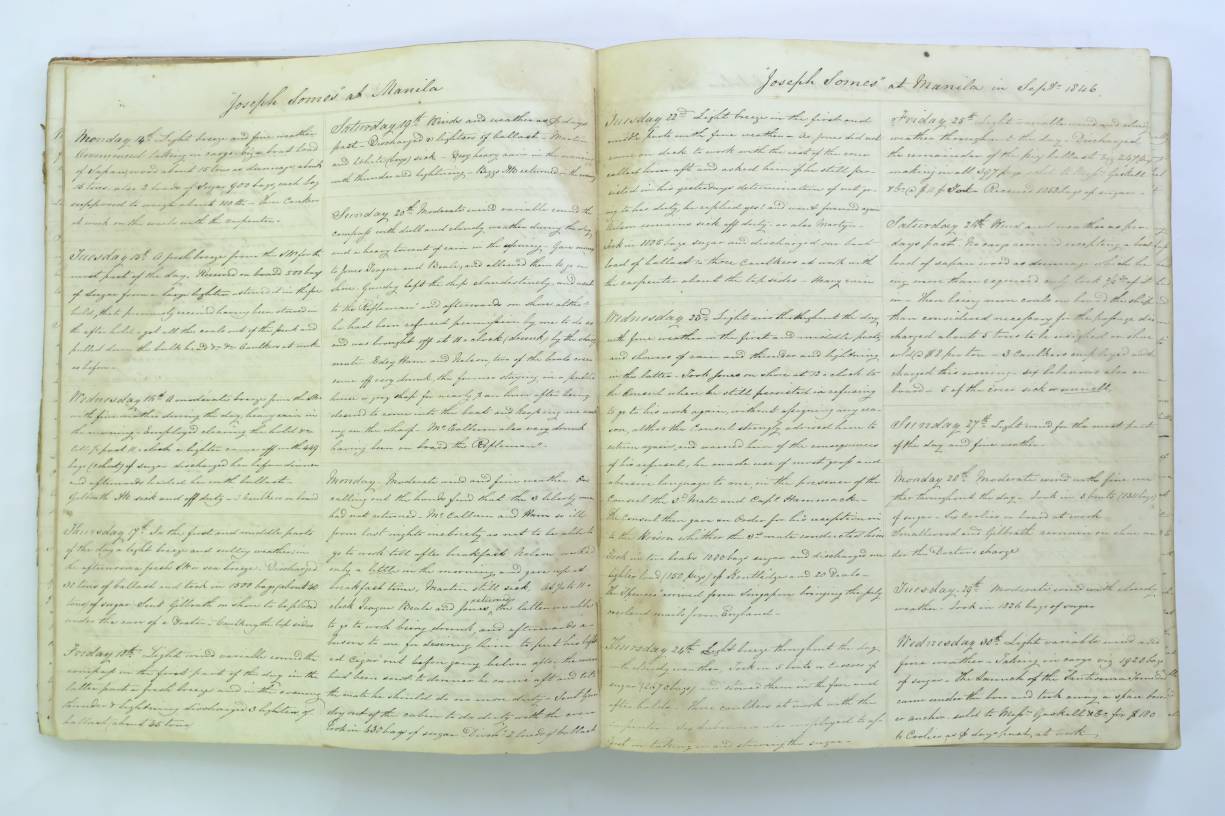 "Joseph Somes" at Manila
Monday 14th Light breeze and fine weather
Commenced taking in cargo by a boat load
of Sapanwood about 15 tons as dunnage about
15 tons. also 2 loads of Sugar 900 bags, each bag
supposed to weigh about 110 lbs - Two Caulkers
at work on the waists with the carpenter -
Tuesday 15th A fresh breeze from the SW for the
most part of the day. Received on board 500 bags
of Sugar from a large lighter & stowed it in the fore
hold, that previously received having been stowed in
the after hold - got all the coals out of the peak and
pulled down the bulk head &c &c Caulkers at work
as before -
Wednesday 16th A moderate breeze from the SW
with fine weather during the day, heavy rain in
the morning. Employed clearing the hold &c
past 11 o'clock a lighter came off with 449
bags of sugar discharged her before dinner
and afterwards loaded her with ballast -
Gilbrath still sick and off duty - Caulkers on board
Thursday 17th In the first and middle parts
of the day a light breeze and sultry weather, in
the afternoon a fresh SW sea breeze. Discharged
tons of ballast and took in 1500 bags (about
tons) of sugar. Sent Gilbrath on shore to be placed
under the care of a Doctor - Caulking the top sides
Friday 18th Light wind variable round the
compass in the first part of the day in the
latter part a fresh breeze and in the evening
thunder & lightning discharged 3 lighters of
ballast about 35 tons
Saturday 19th Winds and weather as days
past. Discharged 3 lighters of ballast - Martin
and White (boy) sick - Very heavy rain in the evening
with thunder and lightning - Biggs still returned
Sunday 20th Moderate wind variable round the
compass with dull and cloudy weather during the day
and a heavy torrent of rain in the evening. Gave money
to Jones Teague and Beale, and allowed them to go on
shore. Gundey left the ship clandestinely, and went
to the Rifleman and afterwards on shore altho'
he had been refused permission by me to do so
and was brought off at 11 o'clock (drunk) by the chief
mate. Edey Ham and Nelson, two of the boats crew
came off very drunk, the former staying in a public
house or grog shop for nearly ½ an hour after being
desired to come into the boat and keeping me wait-
ing on the wharf. McCallum also very drunk
having been on board the "Rifleman" -
Monday. Moderate wind and fine weather. On
calling out the hands find that the 3 liberty men
had not returned - McCallum and Ham so ill
from last nights inebriety as not to be able to
go to work till after breakfast. Nelson worked
only a little in the morning, and gave up at
breakfast time. Martin still sick. At ½ to 11 o
clock Teague Beale and Jones returned, the latter unable
to go to work being drunk, and afterwards a-
busive to me for desiring him to put his light-
ed Cigar out before going below after the men
had been sent to dinner he came aft and told
the mate he should do no more duty - Sent Gun-
dey out of the cabin to do duty with the crew
Took in 430 bags of sugar Disch'd 2 loads of ballast
"Joseph Somes" at Manila in Septr 1846.
Tuesday 22nd Light breeze in the first and
middle parts with fine weather - As Jones did not
come on deck to work with the rest of the crew
called him aft and asked him if he still per-
sisted in his yesterdays determination of not go-
ing to his duty, he replied yes! and went forward again
Nelson remains sick off duty - as also Martyn.
Took in 1105 bags sugar and discharged one boat
load of ballast - three caulkers at work with
the carpenter about the top sides - Heavy rain
Wednesday 23rd Light airs throughout the day,
with fine weather in the first and middle parts,
and showers of rain and thunder and lightning
in the latter - Took Jones on shore at 10 o'clock to
the Consul where he still persisted in refusing
to go to his work again, without assigning any rea-
son, altho' the Consul strongly advised him to
return again, and warned him of the consequences
of his refusal, he made use of most gross and
abusive language to me, in the presence of the
Consul the 3rd Mate and Captn Hammack -
The Consul then gave an Order for his reception in-
to the Prison whither the 3rd mate conducted him
Took in two loads 1080 bags sugar and discharged one
lighter load (150 pigs) of Kentledge and 20 Deals -
The "Spencer" arrived from Singapore bringing the July
overland mails from England -
Thursday 24th Light breeze throughout the day,
with cloudy weather. Took in 5 boats or cascoes of
sugar (2670 bags) and stowed them in the fore and
after holds - Three caulkers at work with the
carpenter - Six also employed to as-
sist in taking in and stowing the sugar -
Friday 25th Light variable wind and cloudy
weather throughout the day. Discharged
the remainder of the pig ballast viz 247 pigs
making in all 397 pigs sold to Messrs Gaskell
&Co Received 1060 bags of sugar -
Saturday 26th Wind and weather as pre-
days past. No cargo came on excepting a boat
load of sapan wood as dunnage which be-
ing more than required only took of it
in - There being more coals on board the ship
than considered necessary for the passage dis-
charged about 5 tons to be weighed on shore
sold @ $8 per ton - 3 Caulkers employed dis-
charged this evening - six labourers also on
board - 5 of the crew sick
Sunday 27th Light wind for the most part
of the day and fine weather
Monday 28th Moderate wind with fine wea-
ther throughout the day - Took in 3 boats
of sugar - Six Coolies on board at work
Smallwood and Gilbrath remain on shore un-
der the Doctors charge
Tuesday 29th Moderate wind with cloudy
weather - Took in 1326 bags of sugar
Wednesday 30th Light variable wind and
fine weather - Taking in cargo viz 1920 bags
of sugar - The Launch of the
came under the bow and took away a spare bow-
er anchor sold to Messrs Gaskell &Co for $180
6 Coolies as days past, at work